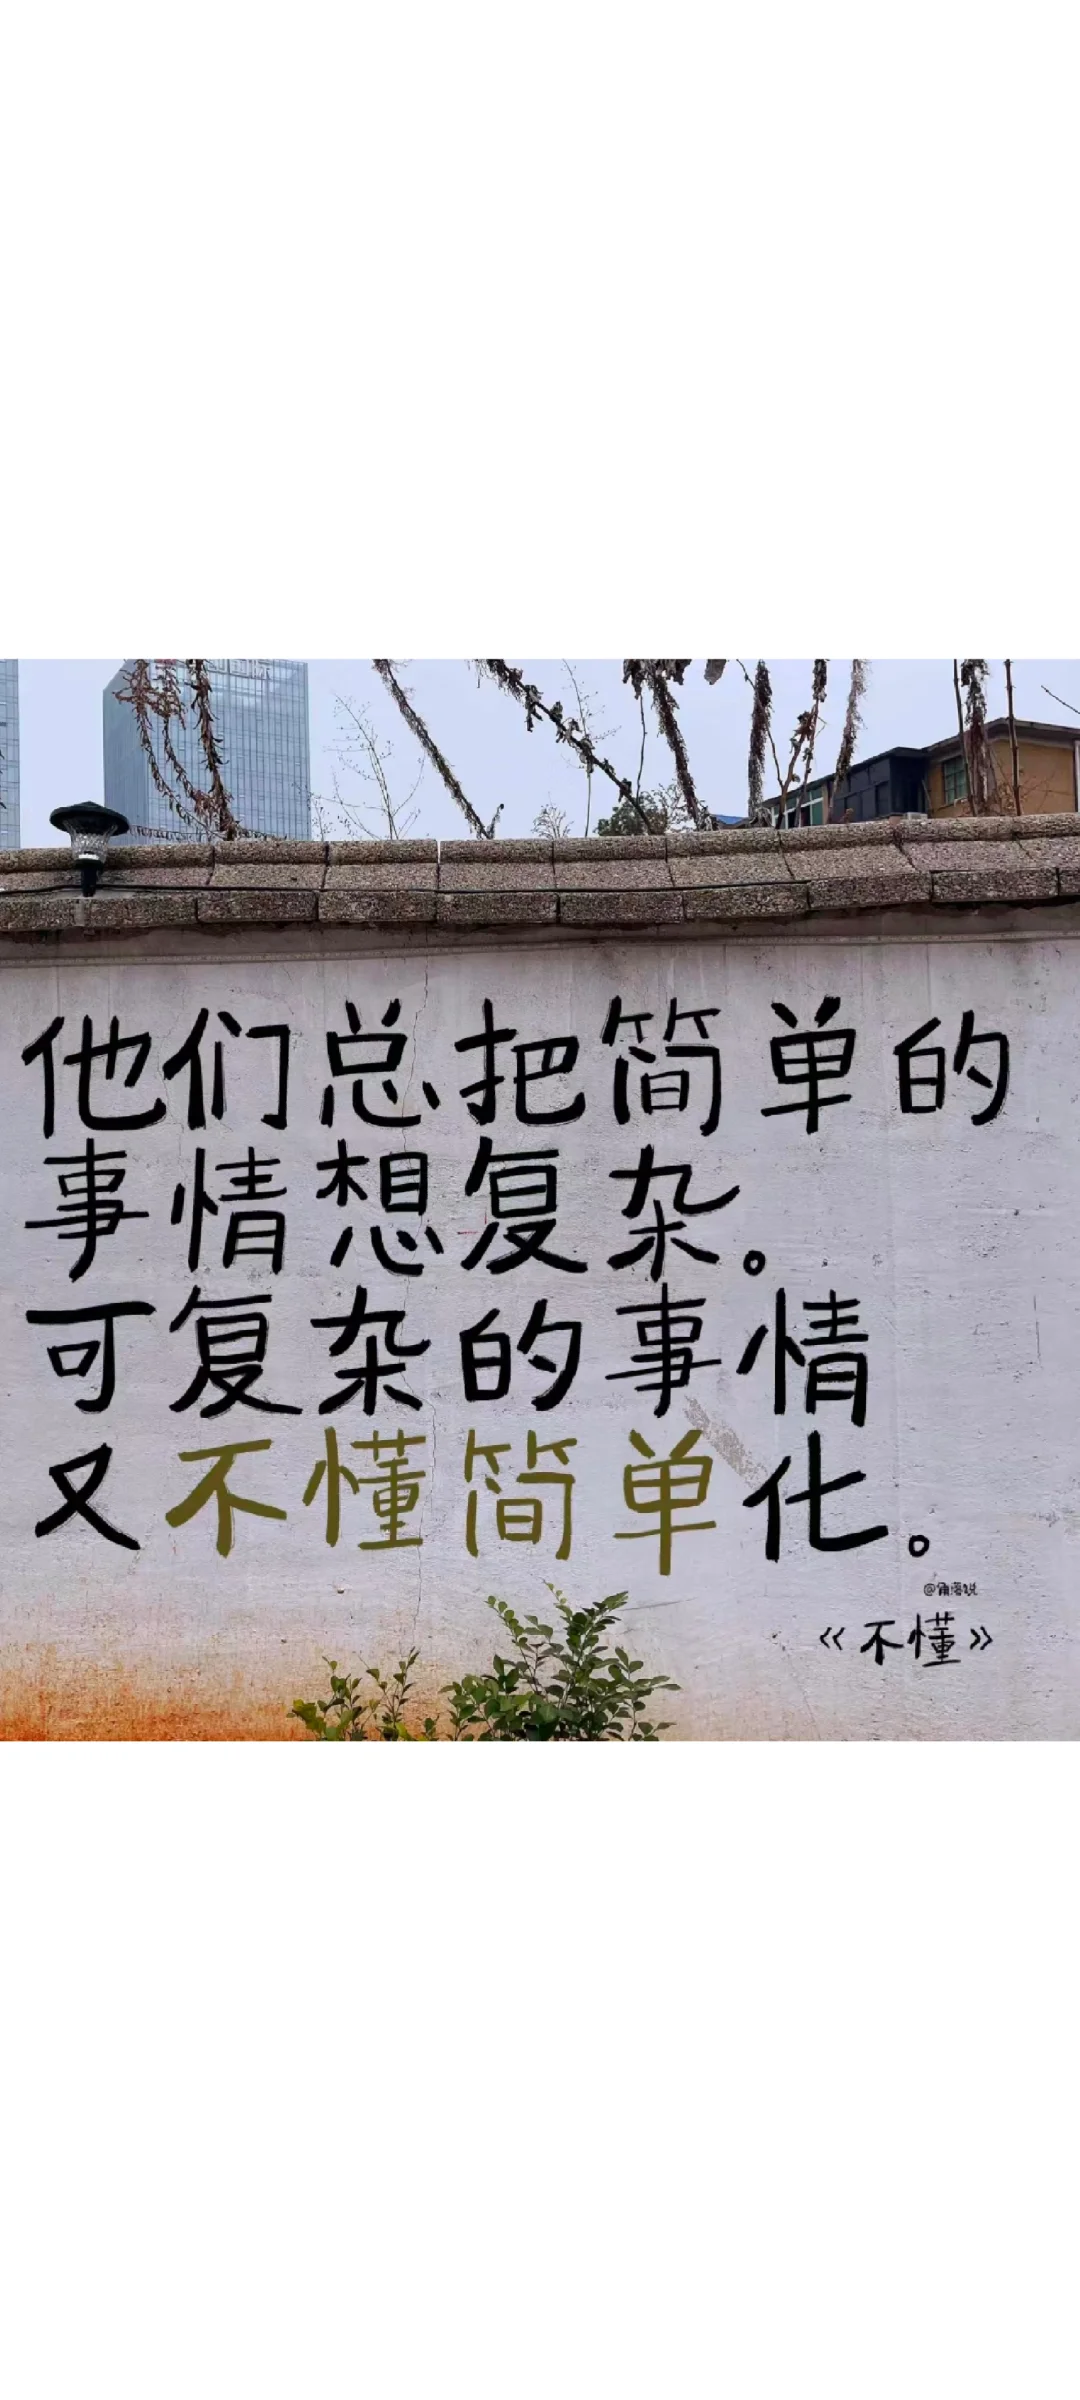 他们总把简单的
事情想复杂。
可复杂的事情
又不懂简单化。
@角落说
《不懂》